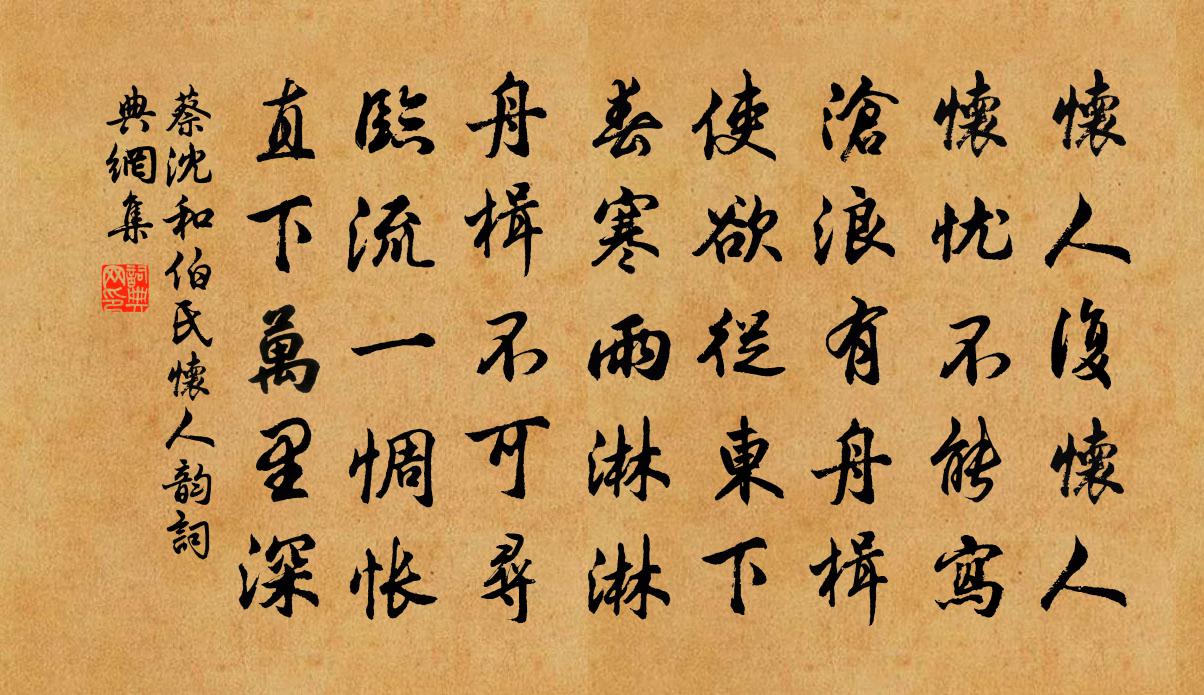 懷人復懷人
懷忧不能寫
滄浪有舟楫
使欲從東下
春寒雨淋淋
舟楫不可尋
臨流一惆悵
直下萬里深
蔡沈和伯氏懷人韵詞
典網集
詞典网印